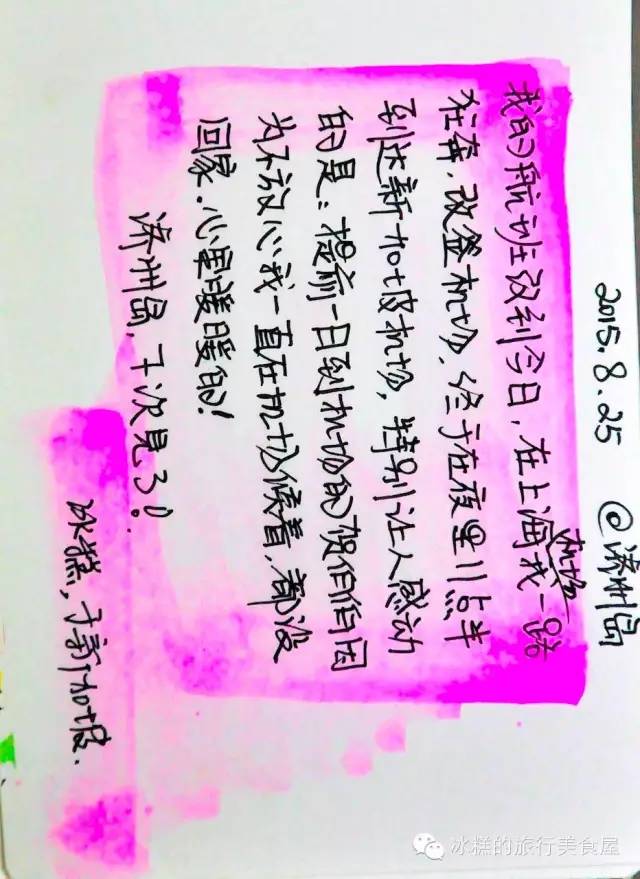 2015.8.25 @济州岛
我的航班改到今日,在上海机场我一路
狂奔,改签机场,终于在夜里11点半
到达新加坡机场,特别让人感动
的是:提前一日到机场的贺伯伯因
为不放心我一直在机场候着,都没
回家.心里暖暖的!
济州岛,下次见了!
冰糕,于新加坡.
冰糕的旅行美食屋